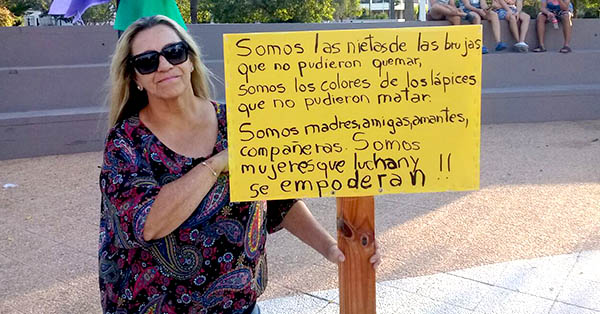 Somos las nietas de las brujas
que no pudieron quemar,
somos los colores de los lápices
que no pudieron matar.
Somos madres, amigas, amantes,
compañeras. Somos
mujeres que luchan y
se empoderan !!